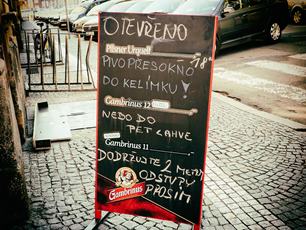 OTEVŘENO
Pilsner Urquell
PIVO PŘES OKNO
DO KELÍMKU!
Gambrinus 12
NEDO DO
PET LAHVE
Gambrinus 11
DODRŽUJTE 2 METRY
ODSTUPY
PROSÍM
Gambrinus